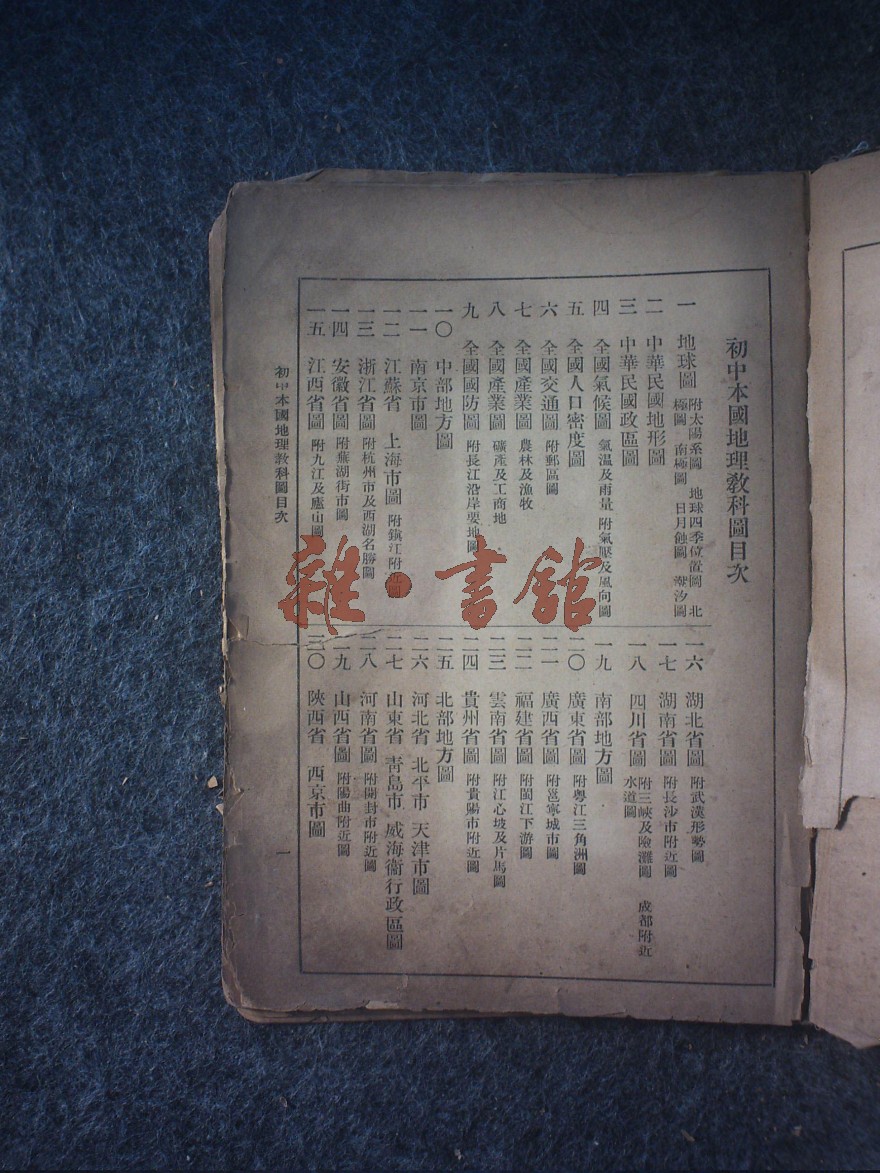 初中本國地理教科圖目次
一 地球圖 附太陽系圖 地球四季位置圖 北極圖 南極圖 日月蝕圖 潮汐圖
二 中華民國地形圖
三 中華民國政區圖
四 全國氣候圖 氣溫及雨量 附氣壓及風向圖
五 全國人口密度圖
六 全國交通圖 附郵區圖
七 全國產業圖 農林及漁牧
八 全國產業圖 礦產及工商地
九 全國國防圖 附長江沿岸要地圖
一〇 中部地方圖
一一 南京市圖
一二 江蘇省 上海市圖 附鎮江附近圖
一三 浙江省圖 附杭州市及西湖名勝圖
一四 安徽省圖 附蕪湖街市圖
一五 江西省圖 附九江及廬山圖
一六 湖北省圖 附武漢形勢圖
一七 湖南省圖 附長沙市附近圖
一八 四川省圖 附三峽及險灘圖 成都附近水道圖
一九 南部地方圖
二〇 廣東省圖 附粵江三角洲圖
二一 廣西省圖 附邕寧城市圖
二二 福建省圖 附閩江下游圖
二三 雲南省圖 附江心坡及片馬圖
二四 貴州省圖 附貴陽市附近圖
二五 北部地方圖
二六 河北省 北平市 天津市圖
二七 山東省 青島市 威海衞行政區圖
二八 河南省圖 附開封市附近圖
二九 山西省圖 附陽曲附近圖
三〇 陝西省 西京市圖
初中本國地理教科圖目次
一
雜·書館